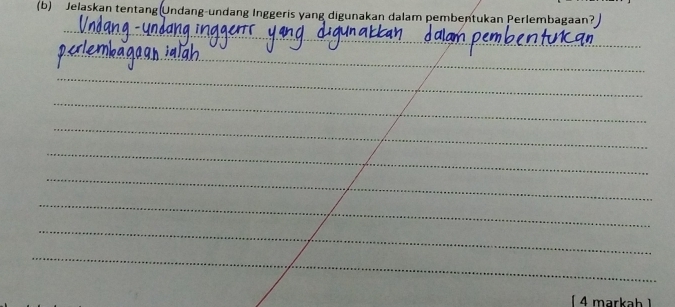 (b) Jelaskan tentang (Undang-undang Inggeris yang digunakan dalam pembentukan Perlembagaan?)
Undang-undang inggeris yang digunakkan dalam pembentukan
perlembagaan ialah
[ 4 markah ]